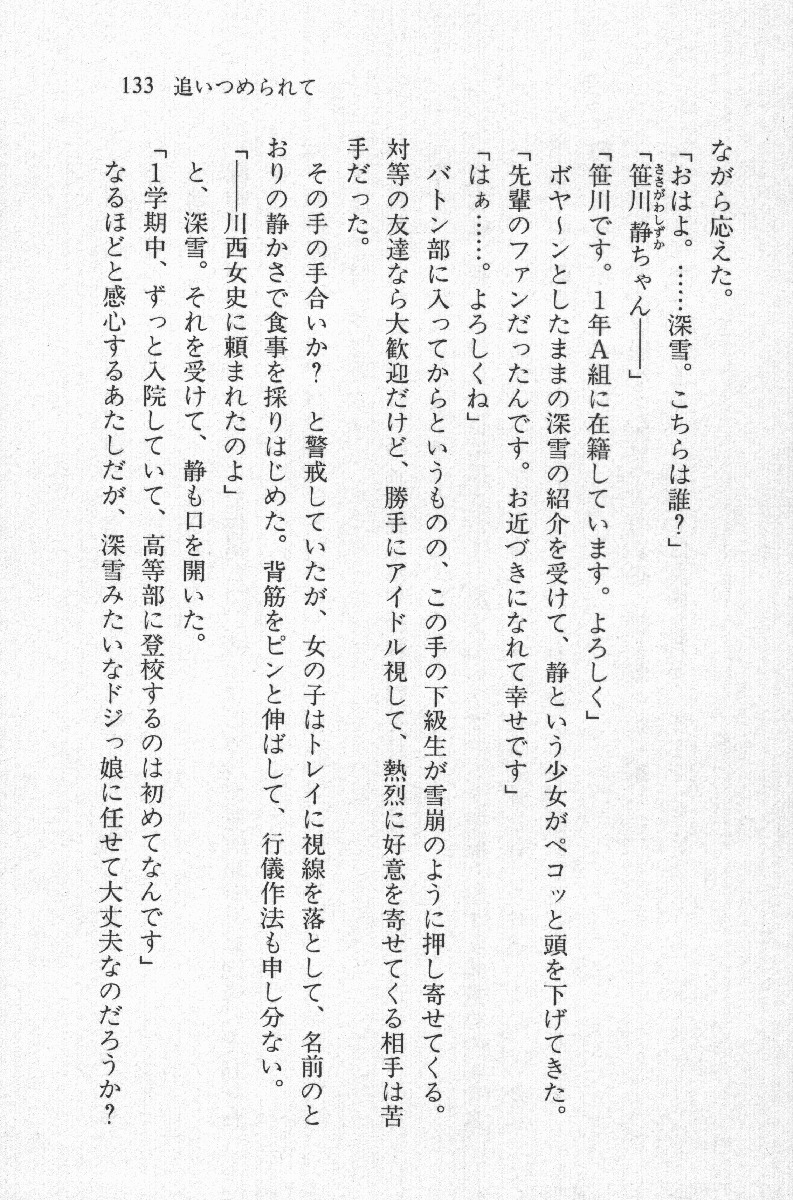 133 追いつめられて
ながら応えた。
「おはよ。……深雪。こちらは誰？」
「笹川静ちゃん――」
ささがわしずか
「笹川です。１年Ａ組に在籍しています。よろしく」
ボヤ〜ンとしたままの深雪の紹介を受けて、静という少女がペコッと頭を下げてきた。
「先輩のファンだったんです。お近づきになれて幸せです」
「はぁ……。よろしくね」
バトン部に入ってからというものの、この手の下級生が雪崩のように押し寄せてくる。
対等の友達なら大歓迎だけど、勝手にアイドル視して、熱烈に好意を寄せてくる相手は苦
手だった。
その手の手合いか？　と警戒していたが、女の子はトレイに視線を落として、名前のと
おりの静かさで食事を採りはじめた。背筋をピンと伸ばして、行儀作法も申し分ない。
「――川西女史に頼まれたのよ」
と、深雪。それを受けて、静も口を開いた。
「１学期中、ずっと入院していて、高等部に登校するのは初めてなんです」
なるほどと感心するあたしだが、深雪みたいなドジっ娘に任せて大丈夫なのだろうか？